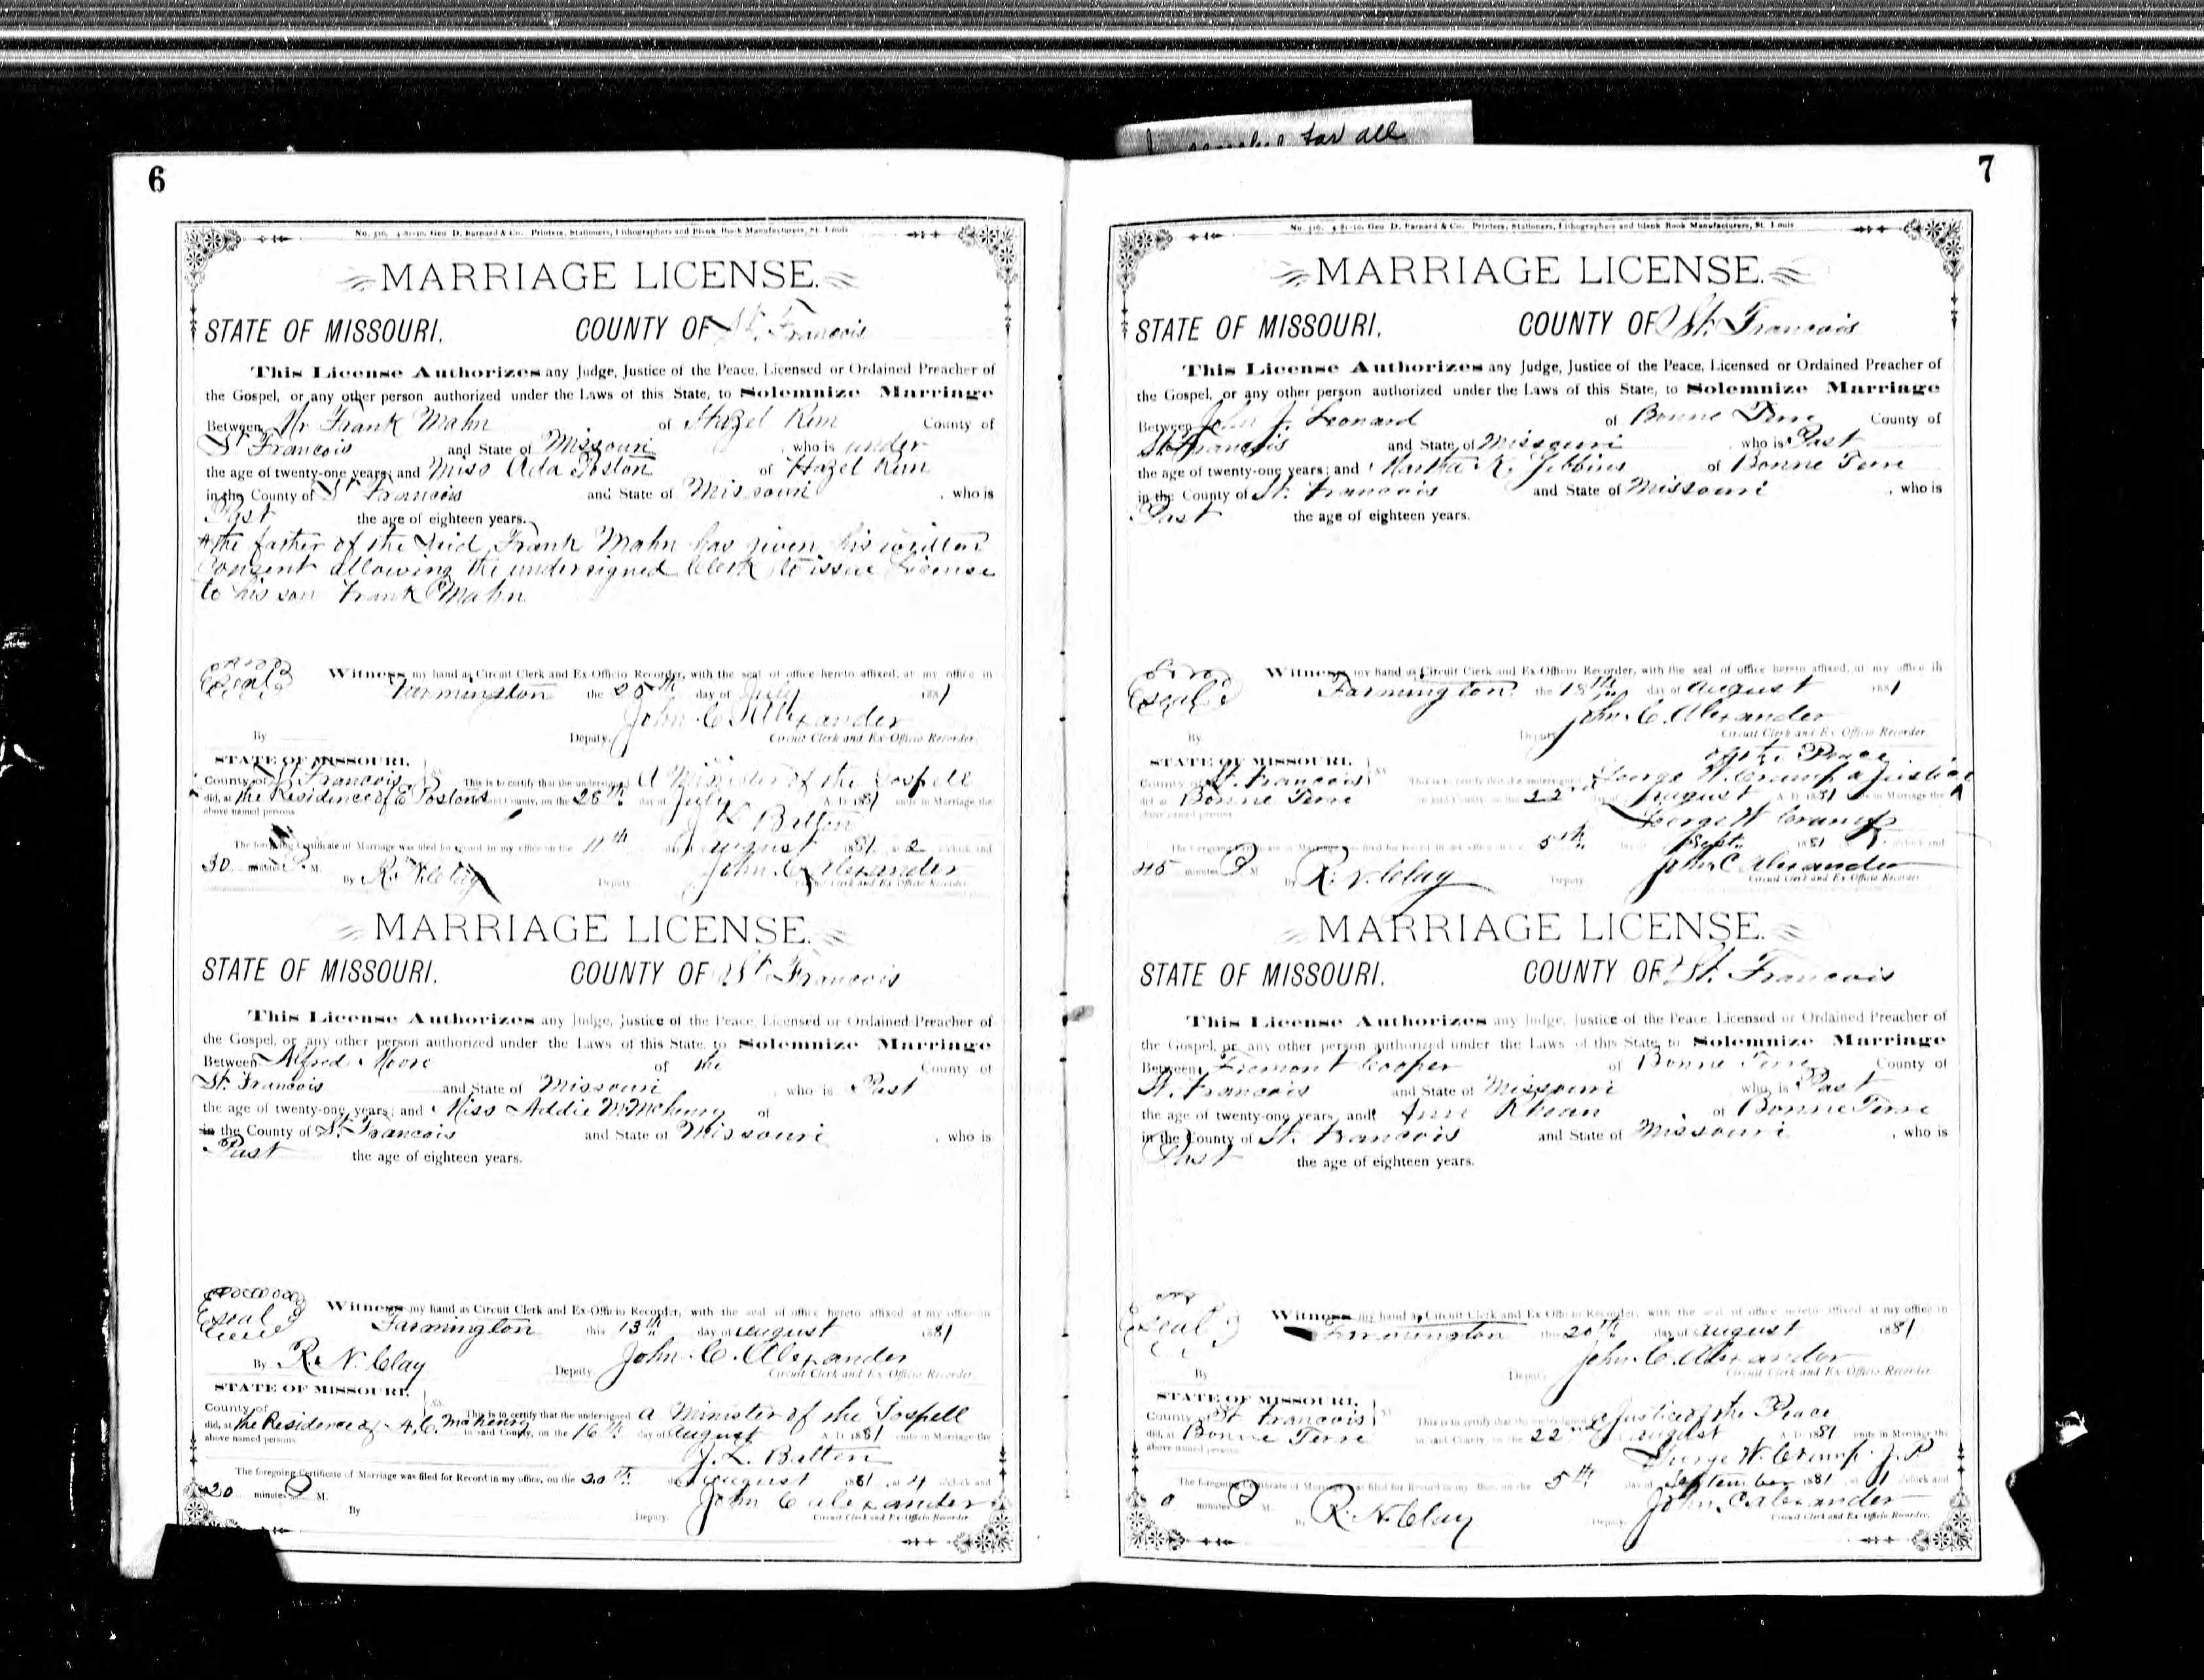 for all
6
No. 516. 4-81-10. Geo D. Barnard & Co. Printers, Stationers, Lithographers and Blank Book Manufacturers, St. Louis
MARRIAGE LICENSE.
STATE OF MISSOURI. COUNTY OF St. Francois
This License Authorizes any Judge, Justice of the Peace, Licensed or Ordained Preacher of
the Gospel, or any other person authorized under the Laws of this State, to Solemnize Marriage
Between Mr Frank Mahn of Hazel Run County of
St Francois and State of Missouri, who is under
the age of twenty-one years; and Miss Ada Poston of Hazel Run
in the County of St Francois and State of Missouri, who is
Past the age of eighteen years.
the father of the Said Frank Mahn has given his written
Consent allowing the undersigned Clerk to issue License
to his son Frank Mahn
Seal Witness my hand as Circuit Clerk and Ex-Officio Recorder, with the seal of office hereto affixed, at my office in
Farmington the 25th day of July 1881
John C. Alexander
By Deputy. Circuit Clerk and Ex-Officio Recorder.
STATE OF MISSOURI,
County of St Francois ss. This is to certify that the undersigned A Minister of the Gospell
did, at the Residence of E Postons in said County, on the 28th day of July A. D. 1881 unite in Marriage the
above named persons.
J L Batten
The foregoing Certificate of Marriage was filed for Record in my office on the 11th day of August 1881, at 2 o'clock and
30 minutes P. M. John C Alexander
By R. N. Clay Deputy. Circuit Clerk and Ex-Officio Recorder
MARRIAGE LICENSE.
STATE OF MISSOURI. COUNTY OF St Francois
This License Authorizes any Judge, Justice of the Peace, Licensed or Ordained Preacher of
the Gospel, or any other person authorized under the Laws of this State, to Solemnize Marriage
Between Alfred Moore of the County of
St. Francois and State of Missouri, who is Past
the age of twenty-one years; and Miss Addie McHenry of
in the County of St. Francois and State of Missouri, who is
Past the age of eighteen years.
Seal Witness my hand as Circuit Clerk and Ex-Officio Recorder, with the seal of office hereto affixed at my office in
Farmington this 13th day of August 1881
John C. Alexander
By R. N. Clay Deputy. Circuit Clerk and Ex-Officio Recorder
STATE OF MISSOURI,
County of ss. This is to certify that the undersigned a Minister of the Gospell
did, at the Residence of A. C. McHenry in said County, on the 16th day of August A. D. 1881 unite in Marriage the
above named persons
J. L. Batten
The foregoing Certificate of Marriage was filed for Record in my office, on the 20th day of August 1881, at 4 o'clock and
20 minutes P M. John C Alexander
By Deputy. Circuit Clerk and Ex-Officio Recorder.
7
No. 516. 4-81-10. Geo D. Barnard & Co. Printers, Stationers, Lithographers and Blank Book Manufacturers, St. Louis
MARRIAGE LICENSE.
STATE OF MISSOURI. COUNTY OF St. Francois
This License Authorizes any Judge, Justice of the Peace, Licensed or Ordained Preacher of
the Gospel, or any other person authorized under the Laws of this State, to Solemnize Marriage
Between John J. Leonard of Bonne Terre County of
St Francois and State of Missouri, who is Past
the age of twenty-one years; and Martha K. of Bonne Terre
in the County of St. Francois and State of Missouri, who is
Past the age of eighteen years.
Seal Witness my hand as Circuit Clerk and Ex-Officio Recorder, with the seal of office hereto affixed, at my office in
Farmington the 18th day of August 1881
John C. Alexander
By Deputy. Circuit Clerk and Ex-Officio Recorder.
of the Peace
STATE OF MISSOURI,
County of St. Francois ss This is to certify that the undersigned George W. Crump a Justice
did at Bonne Terre in said County, on the 22nd day of August A. D. 1881 unite in Marriage the
above named persons
George W Crump
The foregoing Certificate of Marriage was filed for Record in my office, on the 5th day of Sept. 1881 o'clock and
45 minutes P M. John C Alexander
By R. N. Clay Deputy. Circuit Clerk and Ex-Officio Recorder
MARRIAGE LICENSE.
STATE OF MISSOURI. COUNTY OF St. Francois
This License Authorizes any Judge, Justice of the Peace, Licensed or Ordained Preacher of
the Gospel, or any other person authorized under the Laws of this State, to Solemnize Marriage
Between Fremont Cooper of Bonne Terre County of
St. Francois and State of Missouri who is Past
the age of twenty-one years, and of Bonne Terre
in the County of St. Francois and State of Missouri, who is
Past the age of eighteen years.
Seal Witness my hand as Circuit Clerk and Ex-Officio Recorder, with the seal of office hereto affixed at my office in
Farmington the 20th day of August 1881
John C. Alexander
By Deputy. Circuit Clerk and Ex-Officio Recorder
STATE OF MISSOURI,
County of St Francois ss This is to certify that the undersigned a Justice of the Peace
did, at Bonne Terre in said County, on the 22nd day of August A. D. 1881 unite in Marriage the
above named persons
George W. Crump J. P
The foregoing Certificate of Marriage was filed for Record in my office, on the 5th day of September 1881, at 1 o'clock and
0 minutes P M. John C Alexander
By R. N. Clay Deputy. Circuit Clerk and Ex-Officio Recorder.